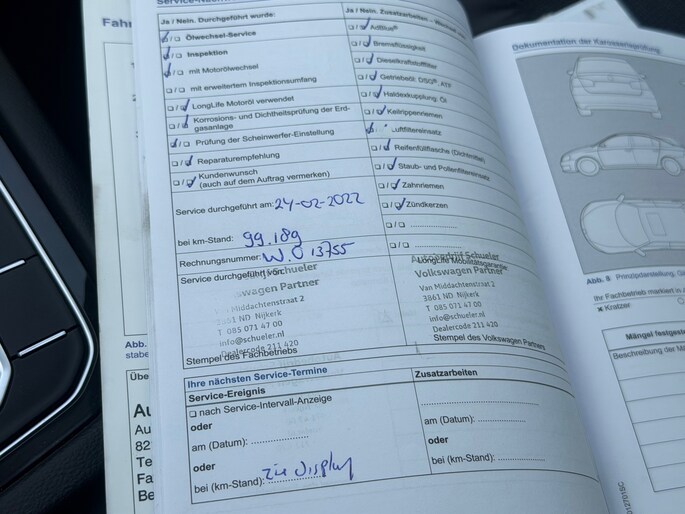 Fahr
Ja / Nein. Durchgeführt wurde:
Ölwechsel-Service
Inspektion
mit Motorölwechsel
mit erweitertem Inspektionsumfang
LongLife Motoröl verwendet
Korrosions- und Dichtheitsprüfung der Erd-
gasanlage
Prüfung der Scheinwerfer-Einstellung
Reparaturempfehlung
Kundenwunsch
(auch auf dem Auftrag vermerken)
Service durchgeführt am: 24-02-2022
bei km-Stand: 99.189
Rechnungsnummer: W.O 13755
Service durchgeführt von:
Schueler
swagen Partner
Middachtenstraat 2
ND Nijkerk
T 085 071 47 00
info@schueler.nl
Dealercode 211 420
Stempel des Fachbetriebs
Ja / Nein. Zusatzarbeiten
AdBlue®
Bremsflüssigkeit
Dieselkraftstofffilter
Getriebeöl: DSG®, ATF
Haldexkupplung: Öl
Keilrippenriemen
Luftfiltereinsatz
Reifenfüllflasche (Dichtmittel)
Staub- und Pollenfiltereinsatz
Zahnriemen
Zündkerzen
LongLife Mobilitätsgarantie
Schueler
Volkswagen Partner
Van Middachtenstraat 2
3861 ND Nijkerk
T 085 071 47 00
info@schueler.nl
Dealercode 211 420
Stempel des Volkswagen Partners
Ihre nächsten Service-Termine
Service-Ereignis
nach Service-Intervall-Anzeige
oder
am (Datum):
oder
bei (km-Stand): zie display
Zusatzarbeiten
am (Datum):
oder
bei (km-Stand):
Abb.
stabe
Übe
Au
Au
82
Te
Fa
Be
Dokumentation der Karosserieprüfung
Abb. 8 Prinzipdarstellung,
Ihr Fachbetrieb markiert in
Kratzer
Mängel festgeste
Beschreibung der